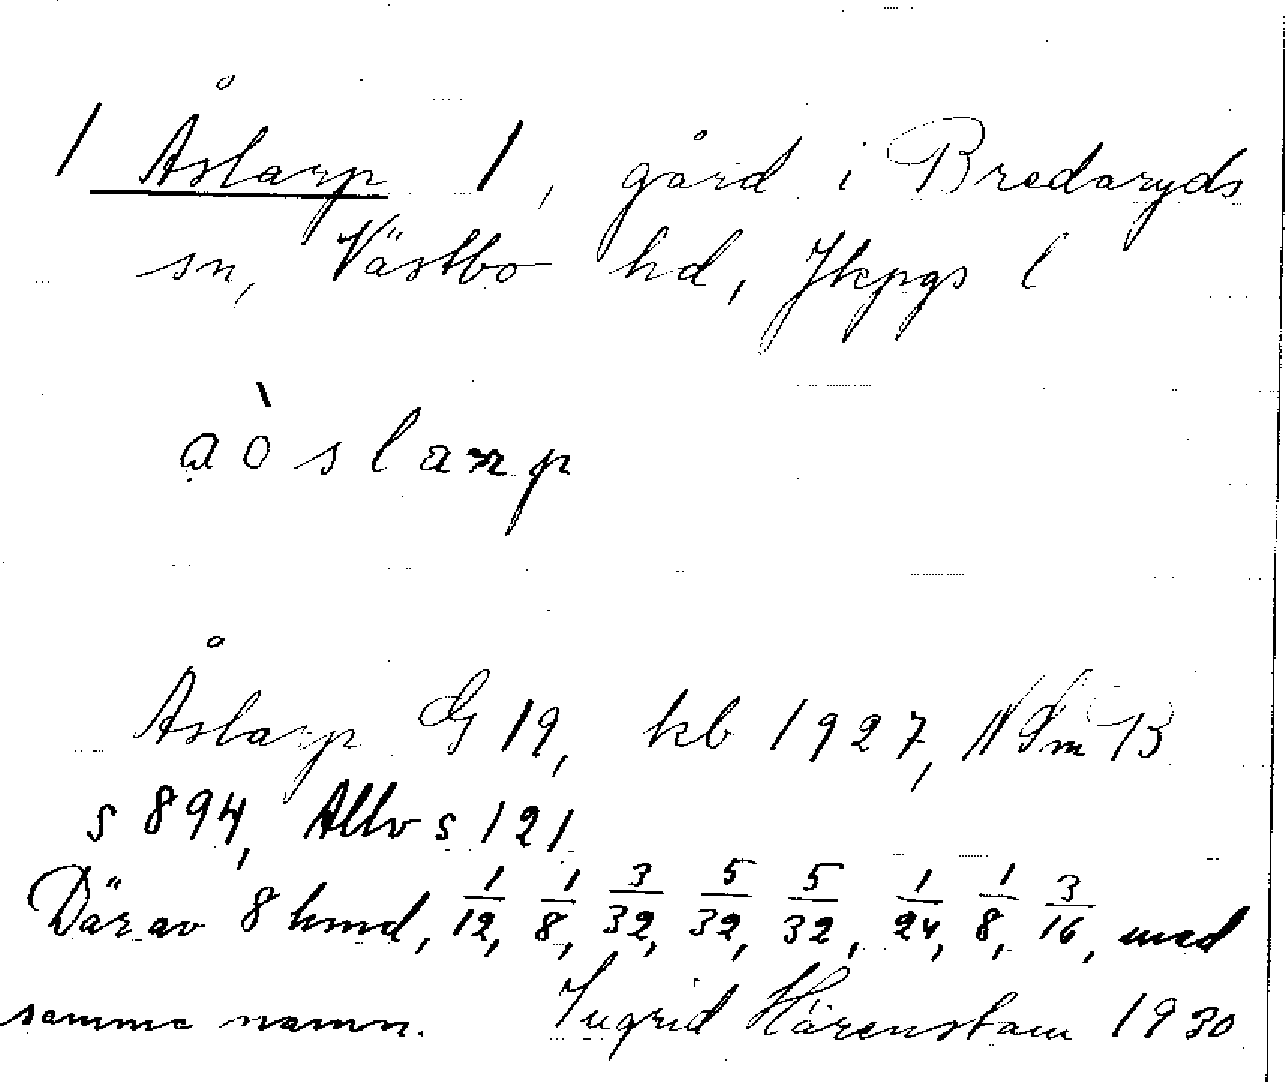 1 Åslarp 1, gård i Bredaryds
sn, Västbo hd, Jkpgs l
aòslarp
Åslarp G 19, kb 1927, NSmB
s 894, Allv s 121
Därav 8 hmd, 1/12, 1/8, 3/32, 5/32, 5/32, 1/24, 1/8, 3/16, med
samma namn. Ingrid Härenstam 1930